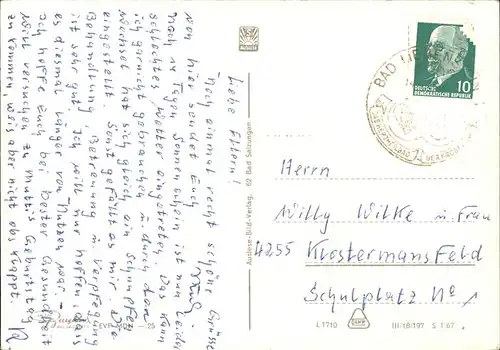 Liebe Eltern!
Noch einmal recht schöne Grüsse
von hier sendet Euch
Nach 14 Tagen Sonnenschein ist nun leider
schlechtes Wetter eingetreten. Das kann
ich garnicht gebrauchen u. durch den
Wechsel hat sich gleich ein Schnupfen
eingestellt. Sonst gefällt es mir. Die
Behandlung, Betreuung u. Verpflegung
ist sehr gut. Ich will nur hoffen, dass
es diesmal länger von Nutzen war.
Ich hoffe Euch bei bester Gesundheit
Will versuchen zu Mutti's Geburtstag
zu kommen weis aber nicht obs klappt.
EVP MDN -,25
Auslese-Bild-Verlag, 62 Bad Salzungen
BAD LIEBEN
DEUTSCHE
DEMOKRATISCHE REPUBLIK
10
Herrn
Willy Wilke u. Frau
4255 Klostermansfeld
Schulplatz No 1
L 1710
III/18/197 S 1 67